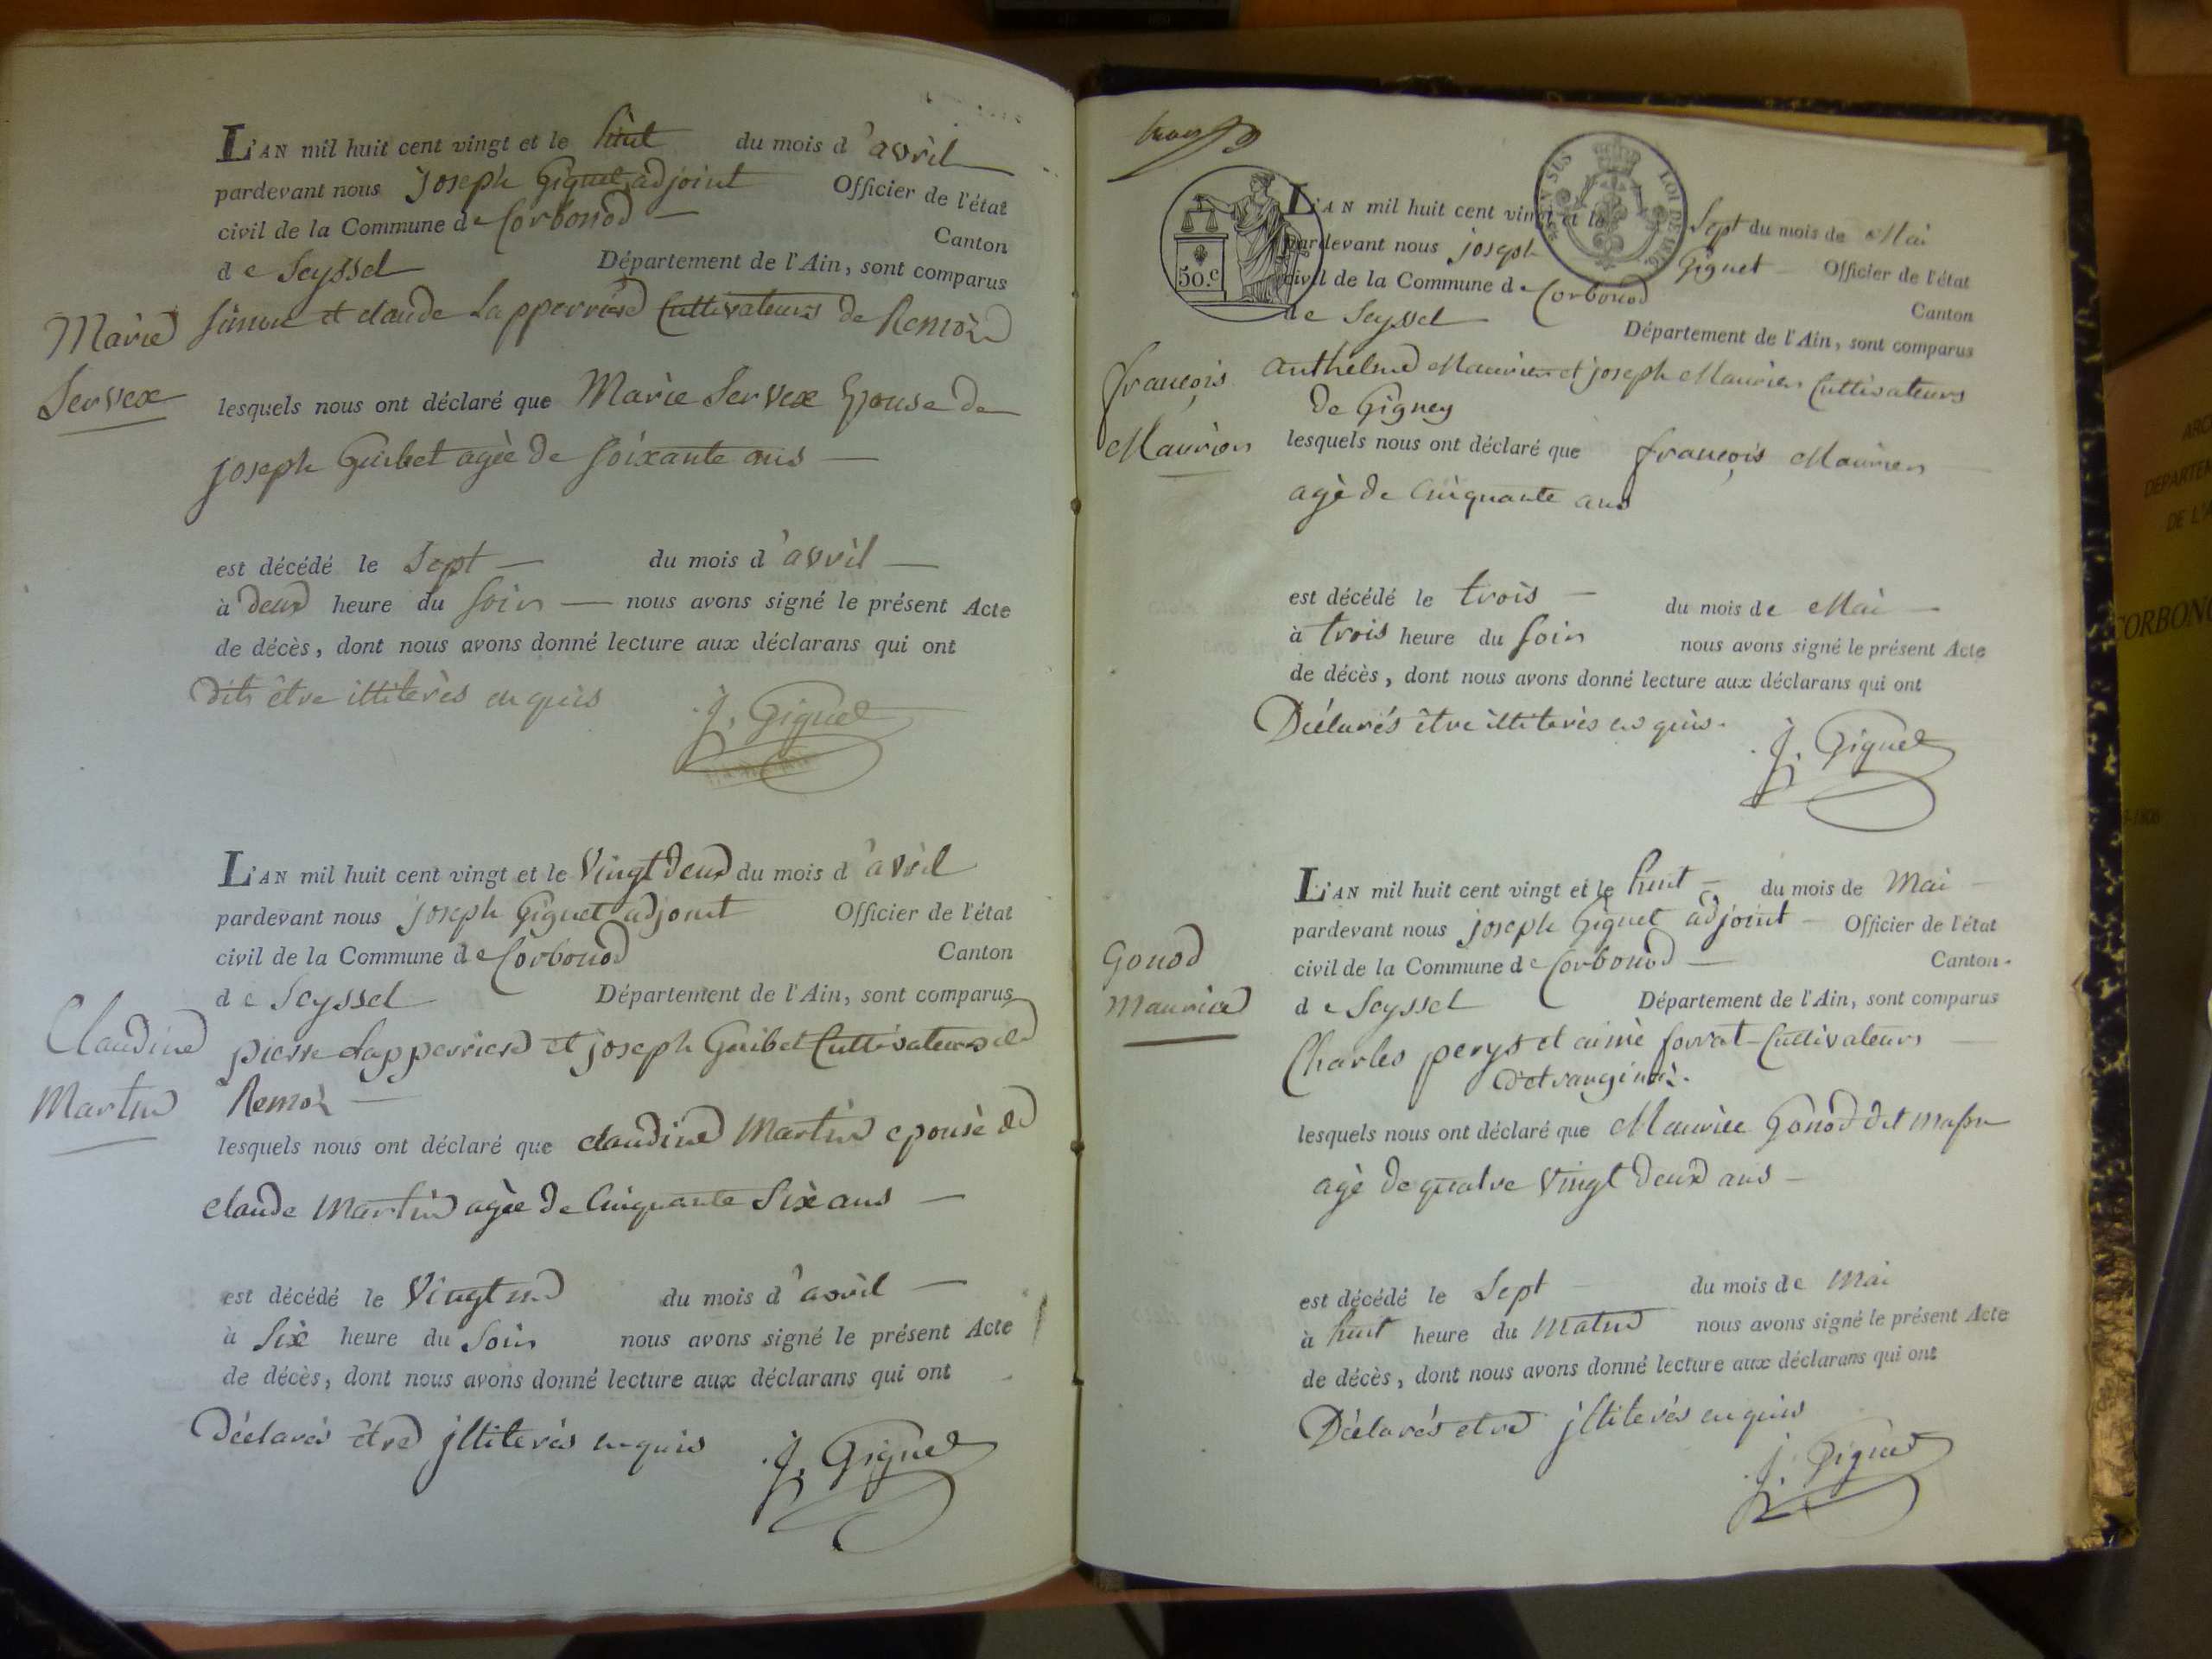 L'AN mil huit cent vingt et le huit du mois d'avril
pardevant nous joseph Giguet adjoint Officier de l'état
civil de la Commune de Corbonod Canton
de Seyssel Département de l'Ain, sont comparus
Marie Servex
simon et claude Lapperriere Cultivateurs de Remoz
lesquels nous ont déclaré que Marie Servex Epouse de
joseph Guibet agèe de soixante ans
est décédé le sept du mois d'avril
à deux heure du soir nous avons signé le présent Acte
de décès, dont nous avons donné lecture aux déclarans qui ont
dits être illiterès enquis
J. Giguet
L'AN mil huit cent vingt et le vingt deux du mois d'avril
pardevant nous joseph Giguet adjoint Officier de l'état
civil de la Commune de Corbonod Canton
de Seyssel Département de l'Ain, sont comparus
Claudine
Martin
pierre Lapperriere et joseph Guibet Cultivateurs de
Remoz
lesquels nous ont déclaré que claudine Martin epouse de
claude Martin agèe de Cinquante Six ans
est décédé le Vingt un du mois d'avril
à Six heure du Soir nous avons signé le présent Acte
de décès, dont nous avons donné lecture aux déclarans qui ont
Déclarés être jlliterés enquis
J. Giguet
50.c
LOI DE 1816
L'AN mil huit cent vingt et le Sept du mois de Mai
pardevant nous joseph Giguet Officier de l'état
civil de la Commune de Corbonod Canton
de Seyssel Département de l'Ain, sont comparus
françois
Maurier
anthelme Maurier et joseph Maurier Cultivateurs
de Gigney
lesquels nous ont déclaré que françois Maurier
agè de Cinquante ans
est décédé le trois du mois de Mai
à trois heure du soir nous avons signé le présent Acte
de décès, dont nous avons donné lecture aux déclarans qui ont
Déclarés être illiterès enquis.
J. Giguet
L'AN mil huit cent vingt et le huit du mois de Mai
pardevant nous joseph Giguet adjoint Officier de l'état
civil de la Commune de Corbonod Canton
de Seyssel Département de l'Ain, sont comparus
Gonod
Maurice
Charles perys et aimè forrat Cultivateurs
d'etranginaz.
lesquels nous ont déclaré que Maurice Gonod dit
agè de quatre Vingt deux ans
est décédé le Sept du mois de Mai
à huit heure du Matin nous avons signé le présent Acte
de décès, dont nous avons donné lecture aux déclarans qui ont
Déclarés etre jlliterés enquis
J. Giguet